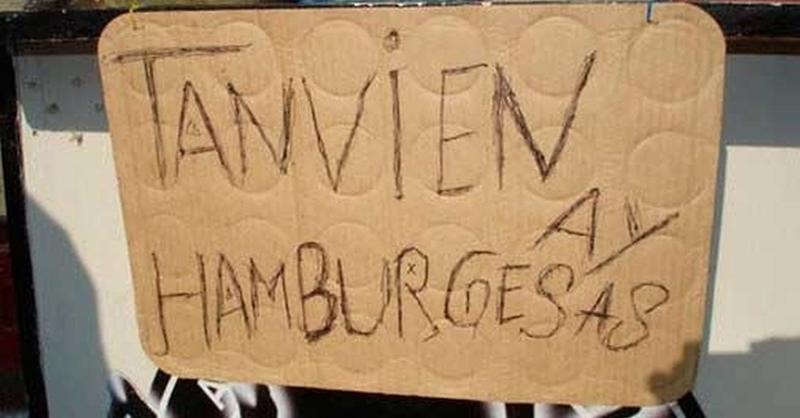 TANViEN
AY
HAMBURGESAS